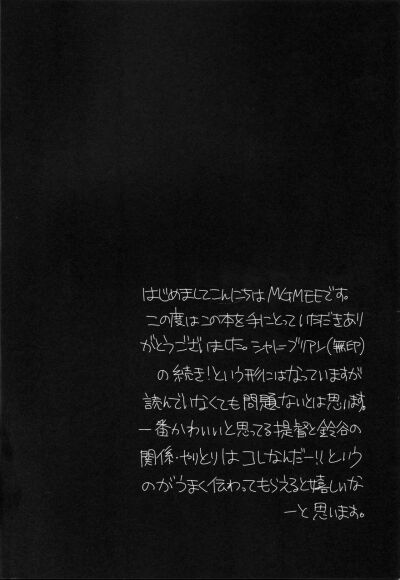 はじめましてこんにちはMGMEEです。
この度はこの本を手にとっていただきあり
がとうございました。シャイニーブリアン(無印)
の続き!という形にはなっていますが
読んでいなくても問題ないとは思います。
一番かわいいと思ってる提督と鈴谷の
関係・やりとりはコレなんだー!!という
のがうまく伝わってもらえると嬉しいな
ーと思います。